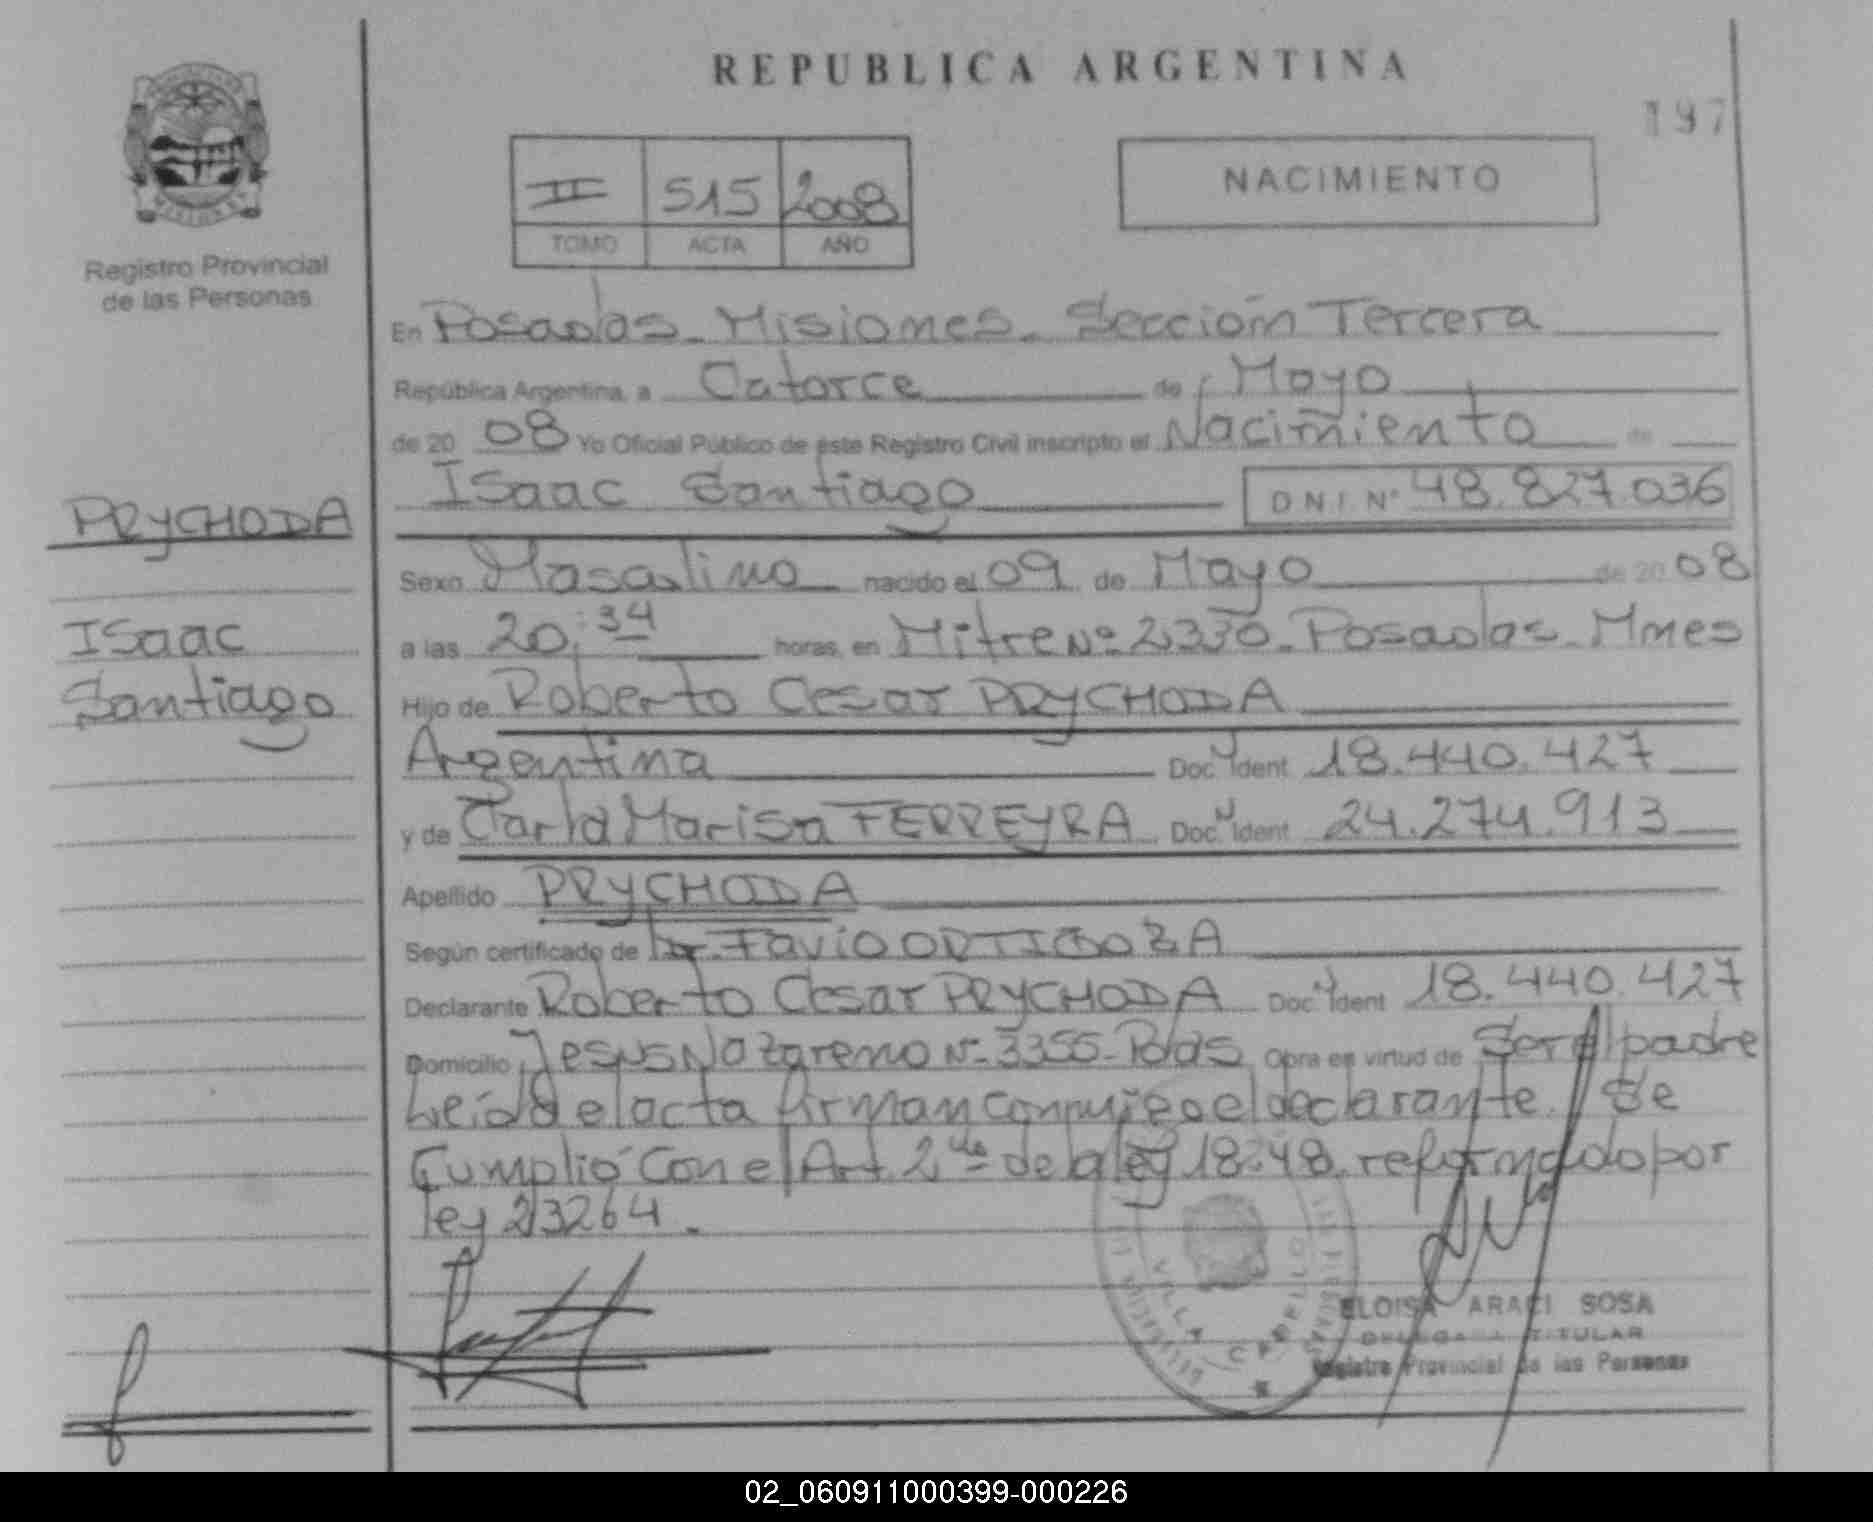 REPUBLICA ARGENTINA
197
II 515 2008
TOMO ACTA AÑO
NACIMIENTO
MISIONES
Registro Provincial
de las Personas
En Posadas - Misiones - Sección Tercera
República Argentina, a Catorce de Mayo
de 20 08 Yo Oficial Público de este Registro Civil inscripto el Nacimiento de
Isaac Santiago D.N.I. N° 48.827.036
PRYCHODA
Isaac
Santiago
Sexo Masculino nacido el 09 de Mayo de 20 08
a las 20:34 horas, en Mitre Nº 2330 - Posadas - Mnes
Hijo de Roberto Cesar PRYCHODA
Argentina Doc. Ident 18.440.427
y de Carla Marisa FERREYRA Doc. Ident 24.274.913
Apellido PRYCHODA
Según certificado de Dr. Favio ORTIGOZA
Declarante Roberto Cesar PRYCHODA Doc. Ident 18.440.427
Domicilio Jesus Nazareno Nº 3355 - Pdas Obra en virtud de Ser el padre
Leída el acta firman conmigo el declarante. Se
Cumplió con el Art. 2do de la ley 18248 reformado por
ley 23264.
VILLA CABELLO
ELOISA ARACI SOSA
DELEGADA TITULAR
Registro Provincial de las Personas
02_060911000399-000226